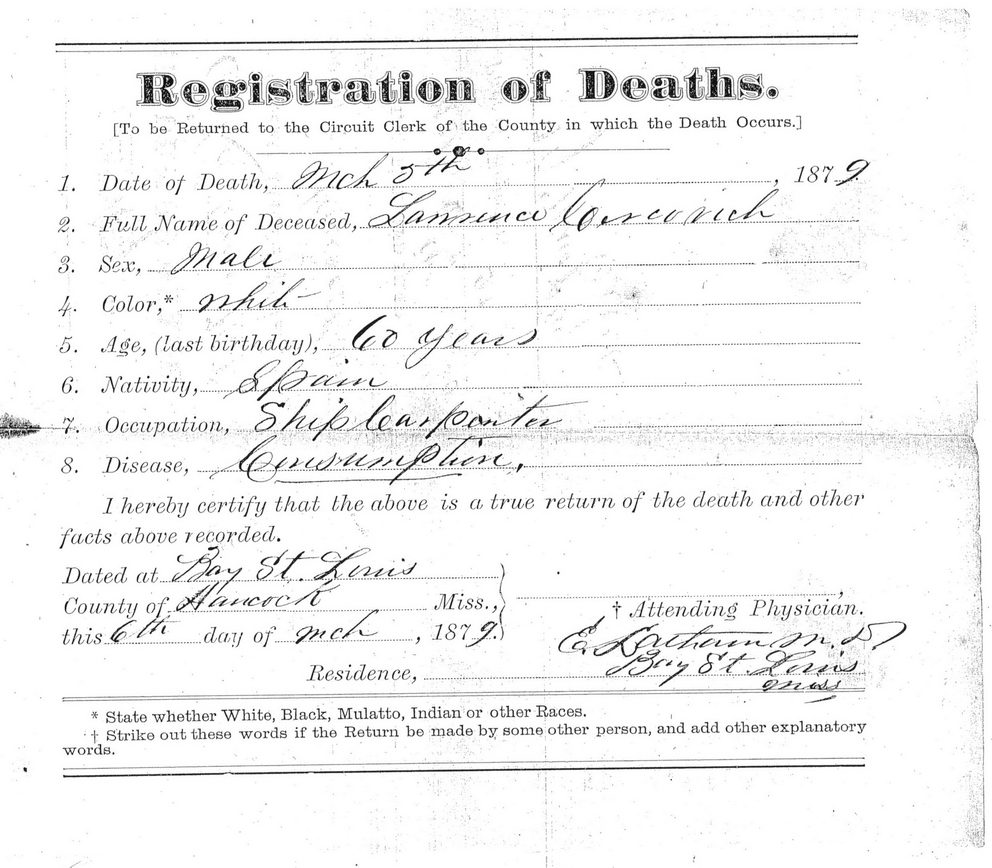 Registration of Deaths.
[To be Returned to the Circuit Clerk of the County in which the Death Occurs.]
1. Date of Death, Mch 5th, 1879.
2. Full Name of Deceased, Lawrence Cercovich
3. Sex, Male
4. Color,* White
5. Age, (last birthday), 60 years
6. Nativity, Spain
7. Occupation, Ship Carpenter
8. Disease, Consumption.
I hereby certify that the above is a true return of the death and other
facts above recorded.
Dated at Bay St. Louis
County of Hancock Miss.,
† Attending Physician.
this 6th day of Mch, 1879.
E. Latham M.D
Residence, Bay St. Louis
Miss
* State whether White, Black, Mulatto, Indian or other Races.
† Strike out these words if the Return be made by some other person, and add other explanatory
words.